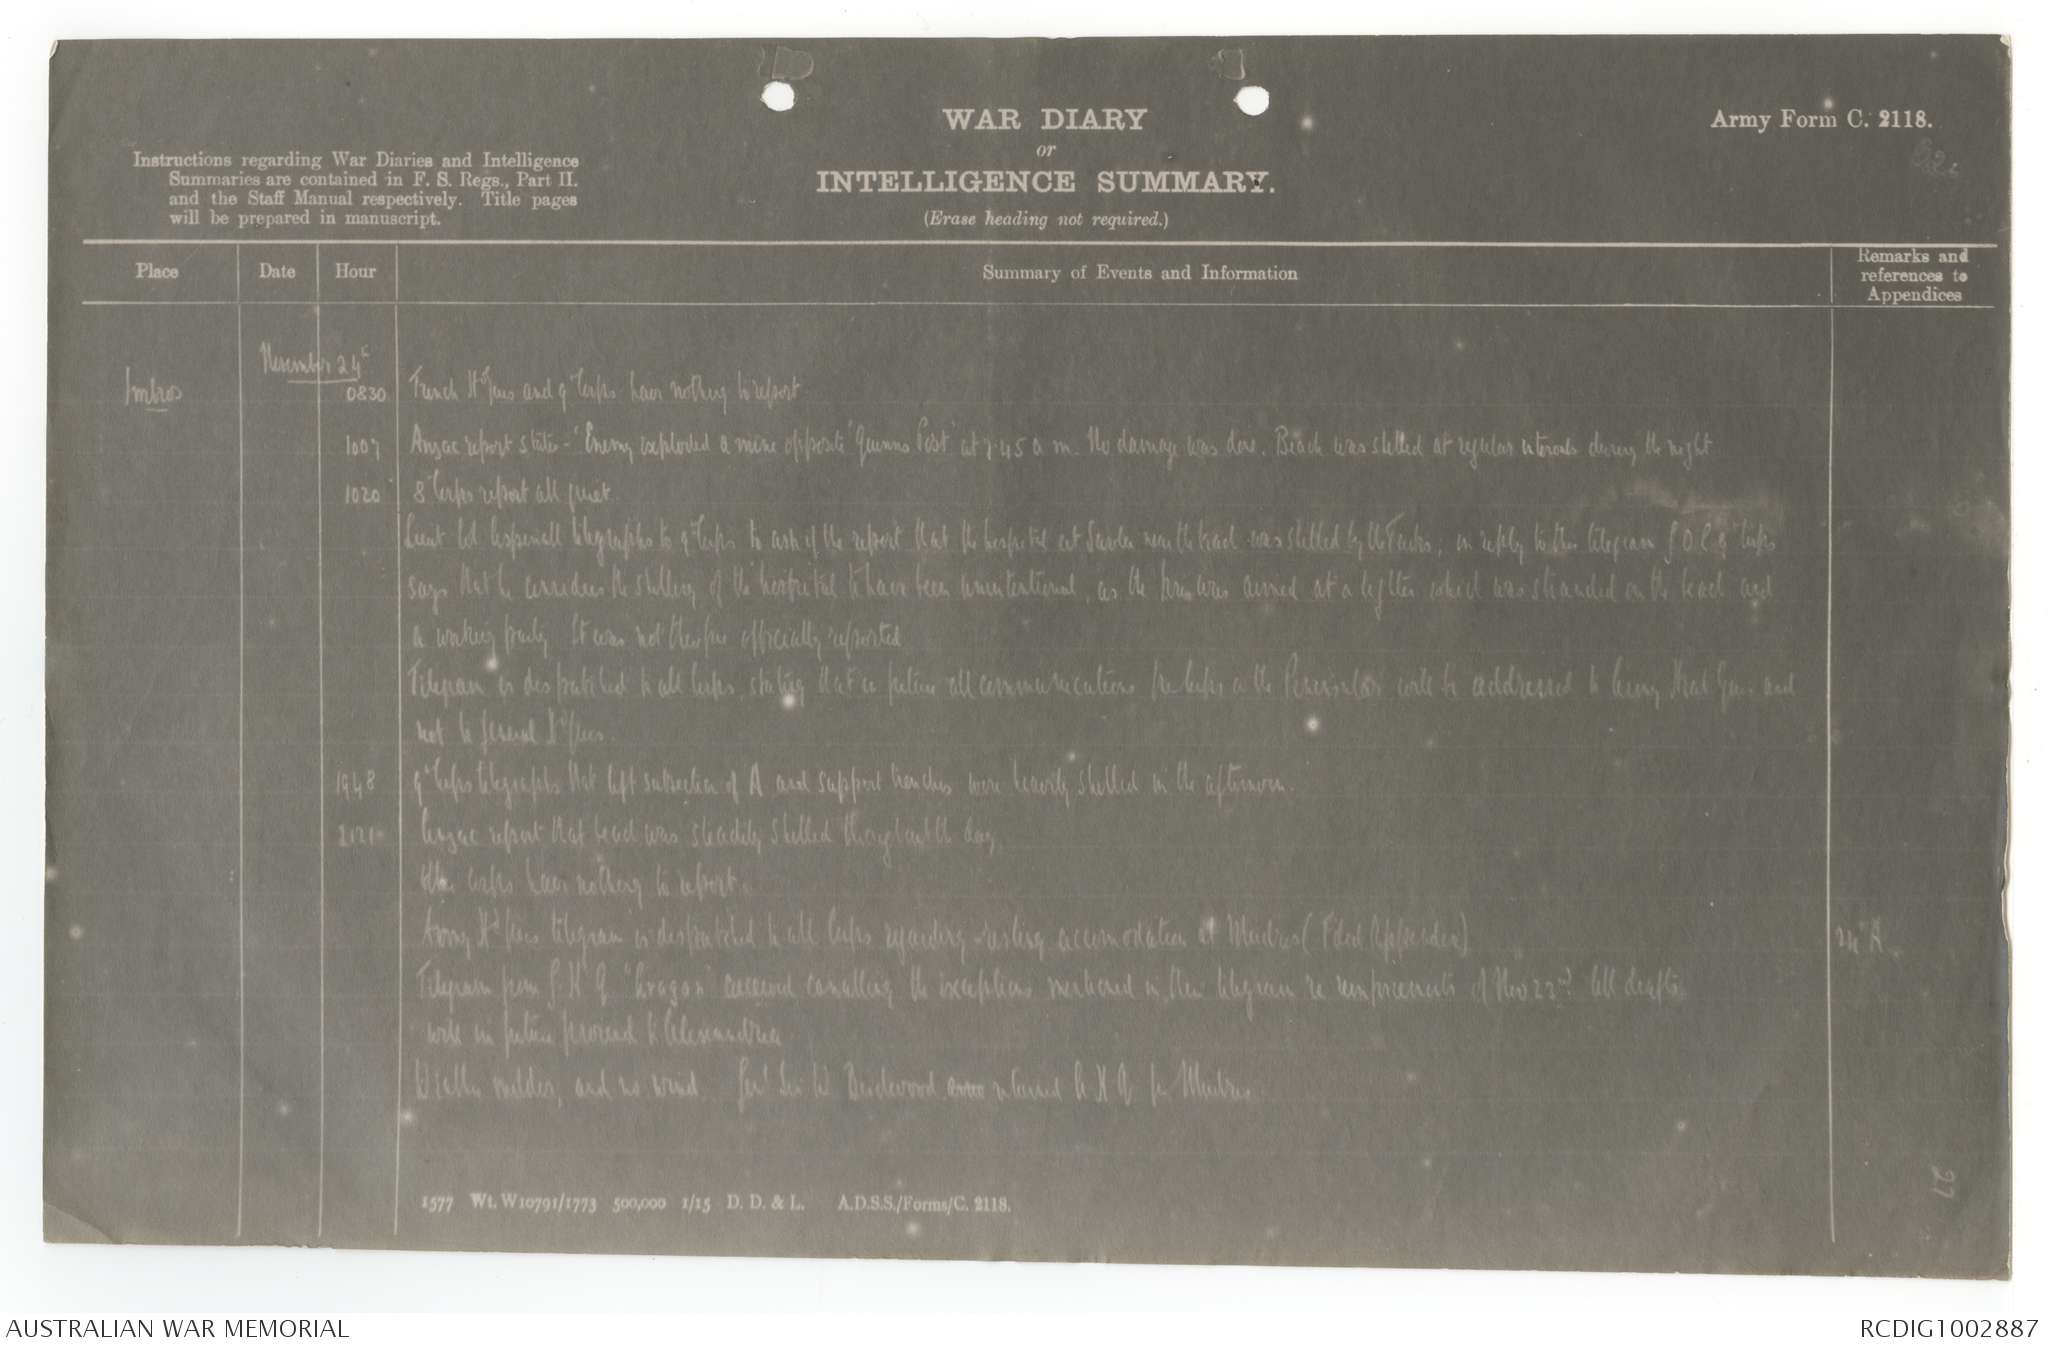 WAR DIARY
or
INTELLIGENCE SUMMARY.
(Erase heading not required.)
Army Form C. 2118.
Instructions regarding War Diaries and Intelligence
Summaries are contained in F. S. Regs., Part II.
and the Staff Manual respectively. Title pages
will be prepared in manuscript.
Place
Date
Hour
Summary of Events and Information
Remarks and
references to
Appendices
November 24th
Imbros
0830 French Hd Qrs and 9th Corps have nothing to report
1007 Anzac report states - 'Enemy exploded a mine opposite 'Quinns Post' at 7.45 a m. No damage was done. Beach was shelled at regular intervals during the night
1020 8th Corps report all quiet.
Lieut Col Aspinall telegraphs to 9th Corps to ask if the report that the hospital at Suvla near the beach was shelled by the Turks, in reply to this telegram G.O.C. 9th Corps
says that he considers the shelling of the hospital to have been unintentional, as the fire was aimed at a lighter which was stranded on the beach and
a working party It was not therefore officially reported
Telegram is despatched to all Corps stating that in future all communications for Corps on the Peninsular will be addressed to Army Head Qrs. and
not to General Hd Qrs.
1948 9th Corps telegraphs that left subsection of A and support trenches were heavily shelled in the afternoon.
2121 Anzac report that beach was steadily shelled throughout the day
Other corps have nothing to report.
Army Hd Qrs telegram is despatched to all Corps regarding resting accomodation at Mudros (Filed Appendix) 24th A
Telegram from G H Q "Aragon" received cancelling the exceptions mentioned in their telegram re reinforcements of Nov 23rd. All drafts
will in future proceed to Alexandria
Weather milder, and no wind Genl Sir W Birdwood returned A H Q fr Mudros
27
1577 Wt. W10791/1773 500,000 1/15 D. D. & L. A.D.S.S./Forms/C. 2118.
AUSTRALIAN WAR MEMORIAL
RCDIG1002887